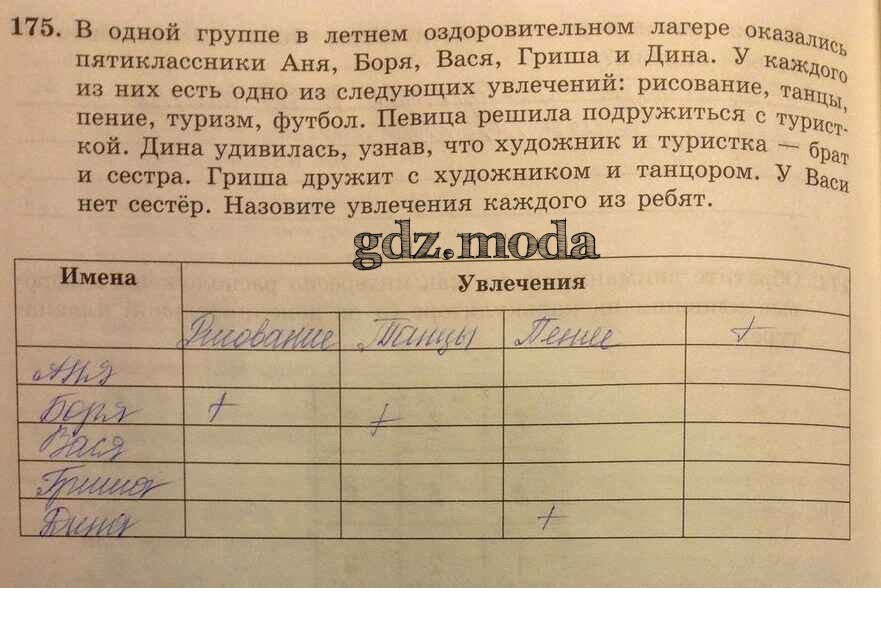 175. В одной группе в летнем оздоровительном лагере оказались
пятиклассники Аня, Боря, Вася, Гриша и Дина. У каждого
из них есть одно из следующих увлечений: рисование, танцы,
пение, туризм, футбол. Певица решила подружиться с турист-
кой. Дина удивилась, узнав, что художник и туристка — брат
и сестра. Гриша дружит с художником и танцором. У Васи
нет сестёр. Назовите увлечения каждого из ребят.
gdz.moda
Имена Увлечения
Рисование Танцы Пение +
Аня
Боря + +
Вася
Гриша
Дина +